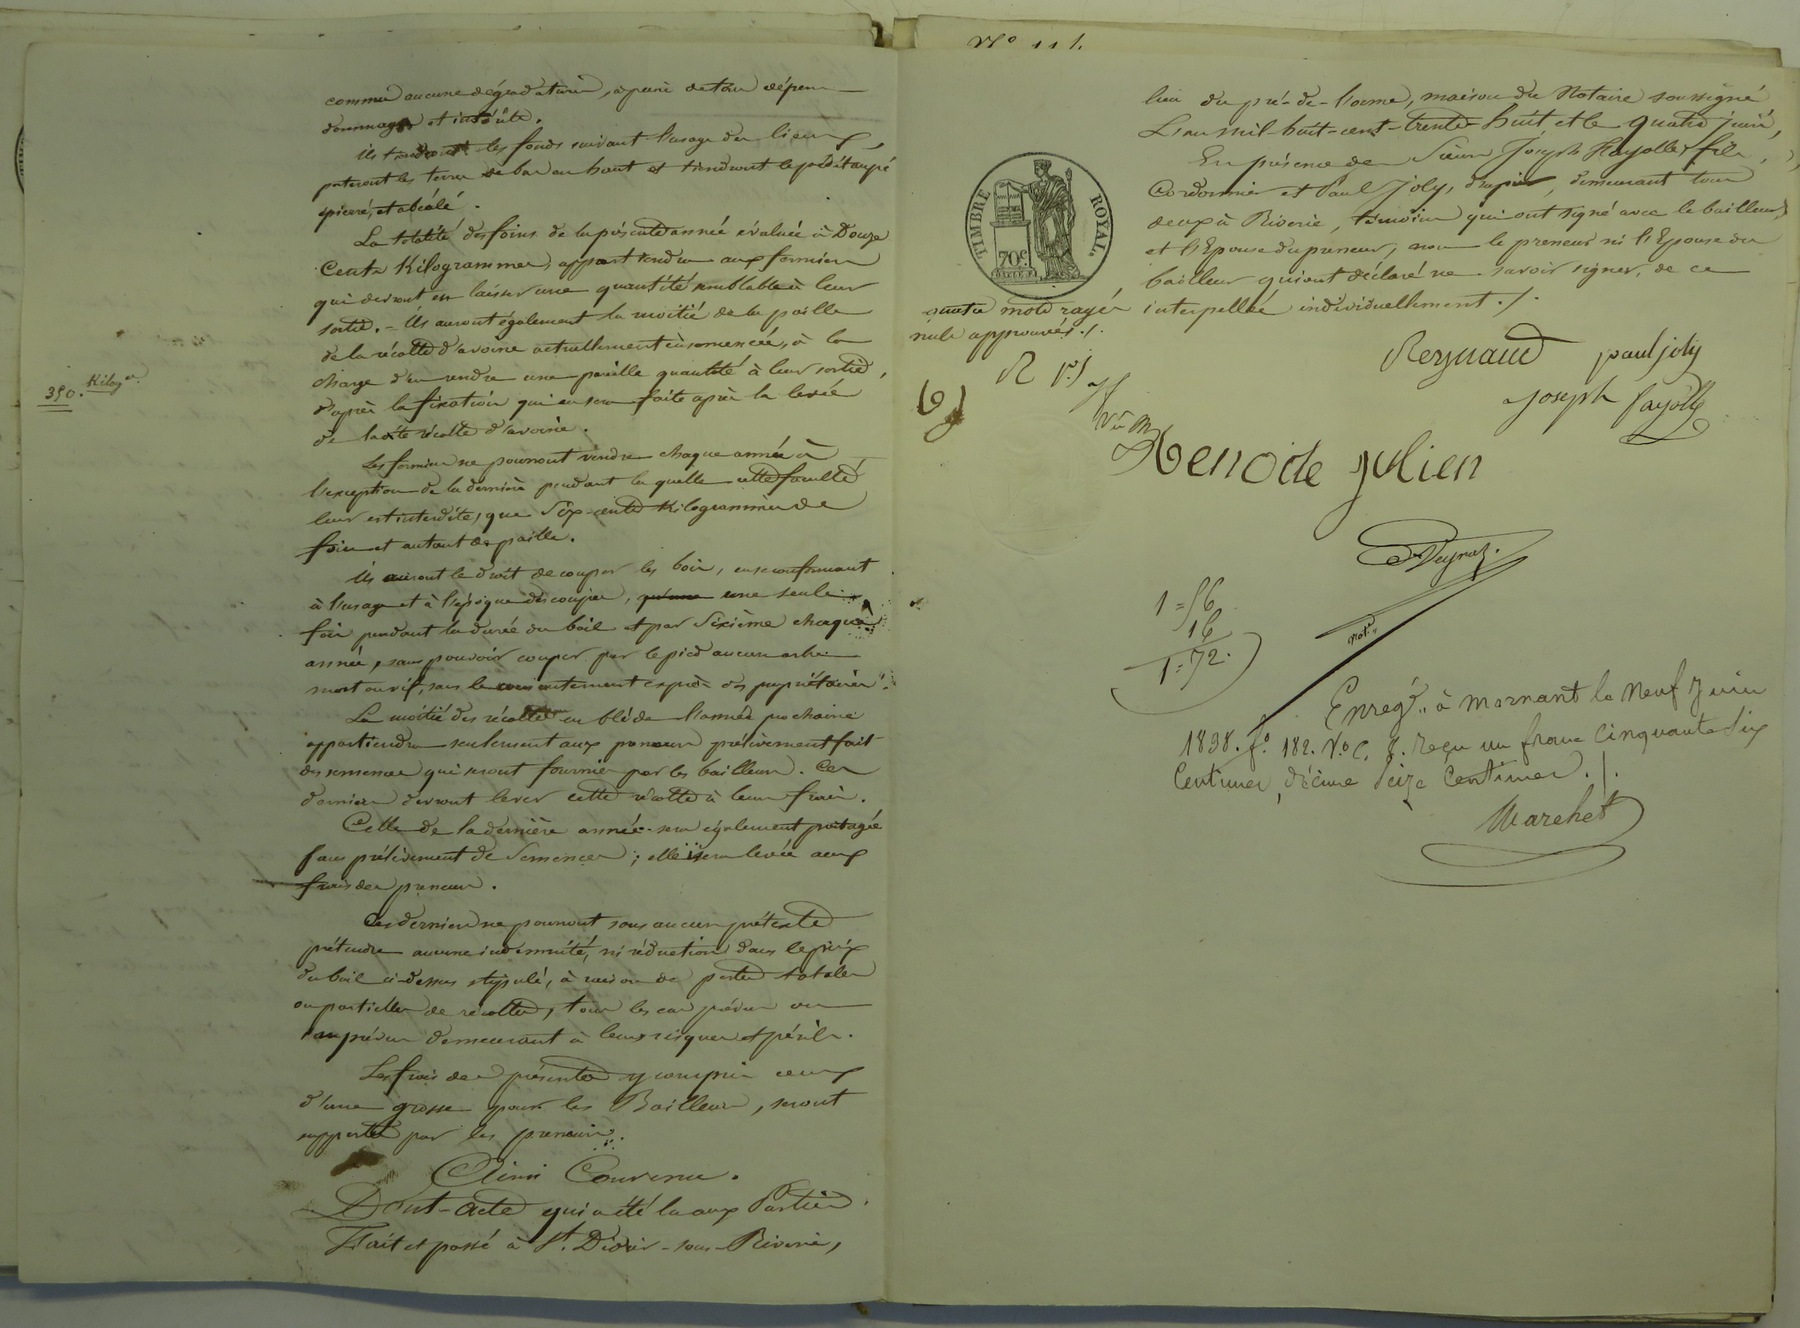 commis aucune dégradation, à peine de tous dépens
dommages et intérêts.
Ils tiendront les fonds suivant l'usage des lieux,
porteront les terres de bas en haut et tiendront le pré étaupé
épierré, et abéalé.
La totalité des foins de la présente année évaluée à Douze
Cents Kilogrammes, appartiendra aux fermiers
qui devront en laisser une quantité semblable à leur
sortie. - Ils auront également la moitié de la paille
de la récolte d'avoine actuellement ensemencée, à la
charge d'en rendre une pareille quantité à leur sortie,
d'après la fixation qui en sera faite après la levée
de ladite récolte d'avoine.
350. Kilog es.
Les fermiers ne pourront vendre chaque année à
l'exception de la dernière pendant laquelle cette faculté
leur est interdite, que Six cents Kilogrammes de
foin et autant de paille.
Ils auront le droit de couper les bois, en se conformant
à l'usage et à l'époque des coupes, qu'une une seule
fois pendant la durée du bail et par Sixième chaque
année, sans pouvoir couper par le pied aucun arbre
mort ou vif, sans le consentement exprès des propriétaires.
La moitié des récoltes en blé de l'année prochaine
appartiendra seulement aux preneurs prélèvement fait
des semences qui seront fournies par les bailleurs. Ces
derniers devront lever cette récolte à leurs frais.
Celle de la dernière année sera également partagée
sans prélèvement de Semences ; elle sera levée aux
frais des preneurs.
Ces derniers ne pourront sous aucun prétexte
prétendre aucune indemnité, ni réduction dans le prix
du bail ci-dessus stipulé, à raison de pertes totales
ou partielles de récoltes, tous les cas prévus ou
imprévus demeurant à leurs risques et périls.
Les frais des présentes y compris ceux
d'une grosse pour les Bailleurs, seront
supportés par les preneurs.
Ainsi Convenu.
Dont-Acte qui a été lu aux Parties.
Fait et passé à St. Didier-sous-Riverie,
N° 111.
lieu du pré-de-l'orme, maison du Notaire soussigné
L'an mil huit-cent-trente huit et le quatre juin,
En présence de Sieurs Joseph Fayolle fils,
Cordonnier et Paul Joly, drapier, demeurant tous
deux à Riverie, témoins qui ont signé avec le bailleur
et l'Epouse du preneur, non le preneur ni l'Epouse du
bailleur qui ont déclaré ne savoir signer, de ce
interpellés individuellement ./.
TIMBRE ROYAL.
70 c.
quatre mots rayés
nuls approuvés ./.
Reynaud paul joly
joseph fayolle
Renode julien
Not.re
1=56
16
1=72.
Enreg.é à Mornant le Neuf Juin
1838. f.o 182. V.o C. 8. reçu un franc Cinquante Six
Centimes, décime Seize Centimes ./.
Marchet